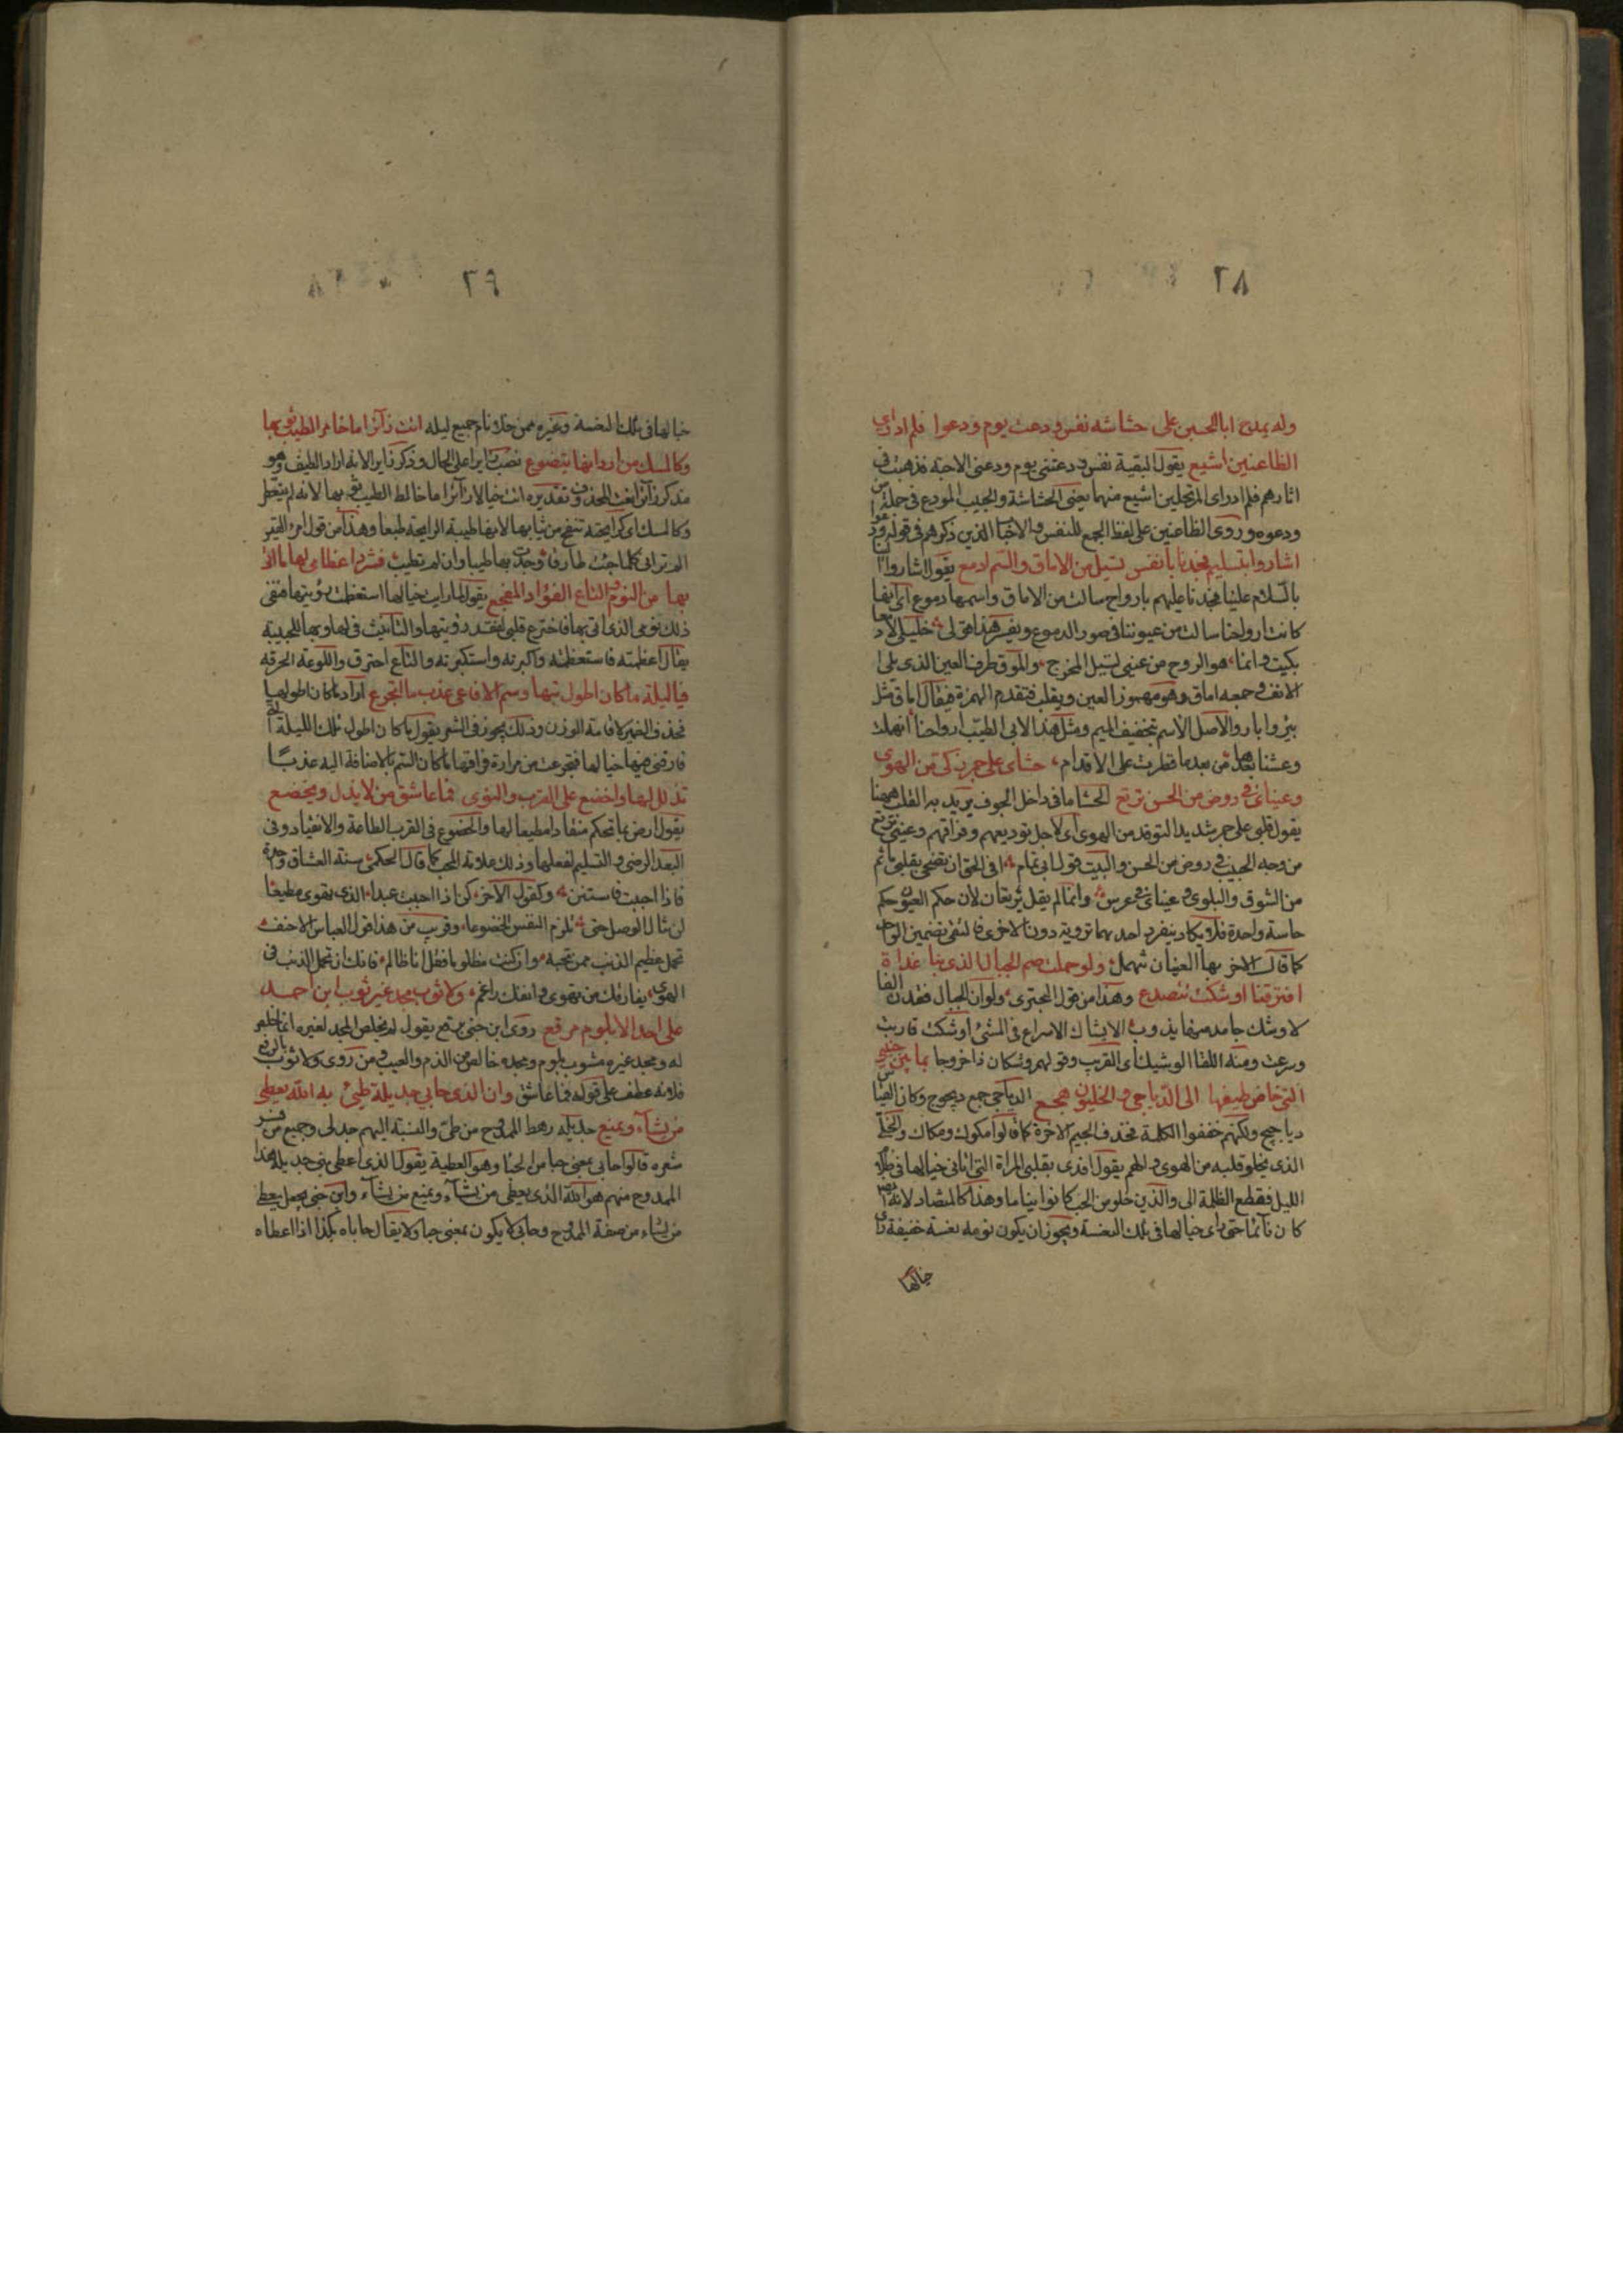 ٢٨
وله يمدح ابا الحسين على حشاشة نفس ودعت يوم ودعوا فلم ادر اى
الظاعنين اشيع يقول لبقية نفس ودعتنى يوم ودعنى الاحبة فذهبت فى
اثارهم فلم ادر اى المرتحلين اشيع منهما يعنى الحشاشة والحبيب المودع فى جملة من
ودعوه وروى الظاعنين على لفظ الجمع للنفس والاحباء الذين ذكرهم فى قوله ودعوا
اشاروا بتسليم فجدنا بانفس تسيل من الاماق والسم ادمع يقول اشاروا الينا
بالسلام علينا فجدنا عليهم بارواح سالت من الاماق واسمها دموع اى انها
كانت ارواحنا سالت من عيوننا فى صور الدموع خليلى لا دما
بكيت وانما هو الروح من عينى تسيل المخرج والموق طرف العين الذى يلى
الانف وجمعه اماق وهو مهموز العين ويقلب فتقدم الهمزة فيقال اماق مثل
بئر وابار والاصل الاسم بتخفيف الميم ومثل هذا لابى الطيب ارواحنا انهملت
وعشنا بعدها من بعد ما قطرت على الاقدام حشاى على جمر ذكى من الهوى
وعيناى فى روض من الحسن ترتع الحشا ما فى داخل الجوف يريد به القلب ههنا
يقول قلبى على جمر شديد التوقد من الهوى اى لاجل توديعهم وفراقهم وعينى ترتع
من وجه الحبيب فى روض من الحسن والبيت قول ابى تمام افى الحق ان يضحى بقلبى ماتم
من الشوق والبلوى وعيناى فى عرس وانما لم يقل ترتعان لان حكم العيون حكم
حاسة واحدة فلا يكاد ينفرد احدهما برؤية دون الاخرى فاكتفى بتضمين الواحد
كما قال الاخر بها العينان تنهمل ولو حملت صم الجبال الذى بنا غداة
افترقنا اوشكت تتصدع وهذا من قول البحترى ولو ان الجبال فقدن الفا
لاوشك جامد منها يذوب الايشاك الاسراع فى المشى اوشكت قاربت
وسرعت ومنه اللقا الوشيك اى القريب وقولهم وشكان ذا خروجا بما بين جنبى
التى خاض طيفها الى الدياجى والخليون هجع الدياجى جمع ديجوج وكان القياس
دياجيج ولكنهم خففوا الكلمة فحذف الجيم الاخرة كما قالوا مكوك ومكاك والخلى
الذى يخلو قلبه من الهوى والهم يقول افدى بقلبى المراة التى اتانى خيالها فى ظلام
الليل فقطع الظلمة الى والذين خلوا من الحب كانوا نياما وهذا كالمتضاد لانه ايضا
كان نائما حتى راى خيالها فى تلك النعسة ويجوز ان يكون نومه نعسة خفيفة راى
خيالها
٢٩
خيالها فى تلك النعسة وغيره ممن خلا نام جميع ليله اتت زائرا ما خامر الطيب ثوبها
وكالمسك من اردانها يتضوع نصب زائرا على الحال وذكر زائرا لانه اراد الطيف وهو
مذكر زائرا نعت المحذوف وتقديره اتت خيالا زائرا ما خالط الطيب ثوبها لانه لم يتعطر
وكالمسك اى كرايحته تنفح من ثيابها لانها طيبة الرايحة طبعا وهذا من قول امرئ القيس
الم ترانى كلما جئت طارقا وجدت بها طيبا وان لم تطيب فشرد اعظامى لها ما اتى
بها من النوم والتاع الفؤاد المفجع يقول لما رايت خيالها استعظمت رؤيتها فنفى
ذلك نومى الذى اتى بها فاحترع قلبى لفقد رؤيتها والتانيث فى لها وبها للحبيبة
يقال اعظمته فاستعظمته واكبرته واستكبرته والتاع احترق واللوعة الحرقة
فيا ليلة ما كان اطول بتها وسم الافاعى عذب ما اتجرع اراد ما كان اطولها
فحذف الضمير لاقامة الوزن وذلك يجوز فى الشعر يقول ما كان اطول تلك الليلة التى
فارقنى فيها خيالها فتجرعت من مرارة فراقها ما كان السم بالاضافة اليه عذبا
تذلل لها واخضع على القرب والنوى فما عاشق من لا يذل ويخضع
يقول ارض بما تحكم منقادا مطيعا لها والخضوع فى القرب الطاعة والانقياد وفى
البعد الرضى والتسليم لفعلها وذلك علامة المحب كما قال الحكمى سنة العشاق واحدة
فاذا احببت فاستنن وكقول الاخر كن اذا احببت عبدا للذى تهوى مطيعا
لن تنال الوصل حتى تلزم النفس الخضوعا وقريب من هذا قول العباس الاحنف
تحمل عظيم الذنب ممن تحبه وان كنت مظلوما فقل انا ظالم فانك ان لم تحمل الذنب فى
الهوى يفارقك من تهوى وانفك راغم ولا ثوب مجد غير ثوب ابن احمد
على احد الا بلوم مرقع روى ابن جنى مرقع يقول لم يخلص المجد لغيره انما خلص
له ومجد غيره مشوب بلوم ومجده خالص من الذم والعيب ومن روى ولا ثوب بالرفع
فلانه عطف على قوله فما عاشق وان الذى حابى جديلة طيئ به الله يعطى
من يشاء ويمنع جديلة رهط الممدوح من طى والنسبة اليهم جدلى وجميع من فسر
شعره قالوا حابى بمعنى حبا من الحبا وهو العطية يقول الذى اعطى بنى جديلة هذا
الممدوح منهم هو الله الذى يعطى من يشاء ويمنع من يشاء وابن جنى يجعل يعطى
من يشاء من صفة الممدوح وحابى لا يكون بمعنى حبا ولا يقال حاباه بكذا اذا اعطاه